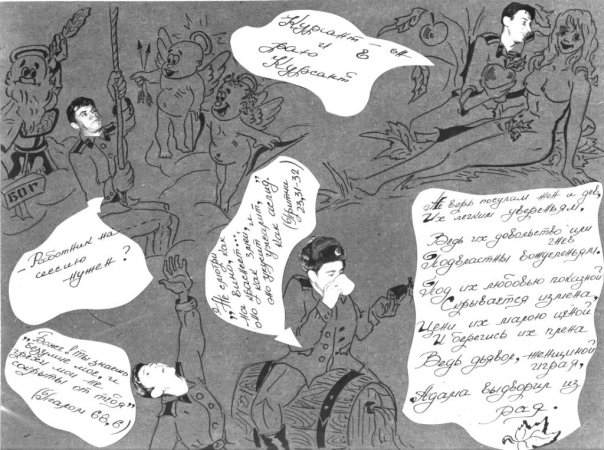 Курсант – он
и в
раю
Курсант
БОГ
- Работник на
сессию
нужен?
„Не смотри как
вино...
как змей, и
аспид."
(Притчи
23,31-32)
„Боже! Ты знаешь
безумие мое и
грехи мои не
сокрыты от тебя"
(Псалом 68.6)
Не верь посулам жен и дев,
Их легким увереньям.
Ведь их довольство или
гнев
Подвластны вожделеньям.
Под их любовью показной
Скрывается измена,
Цени их малою ценой
И берегись их плена
Ведь дьявол, женщиной
играя,
Адама выдворил из
рая.